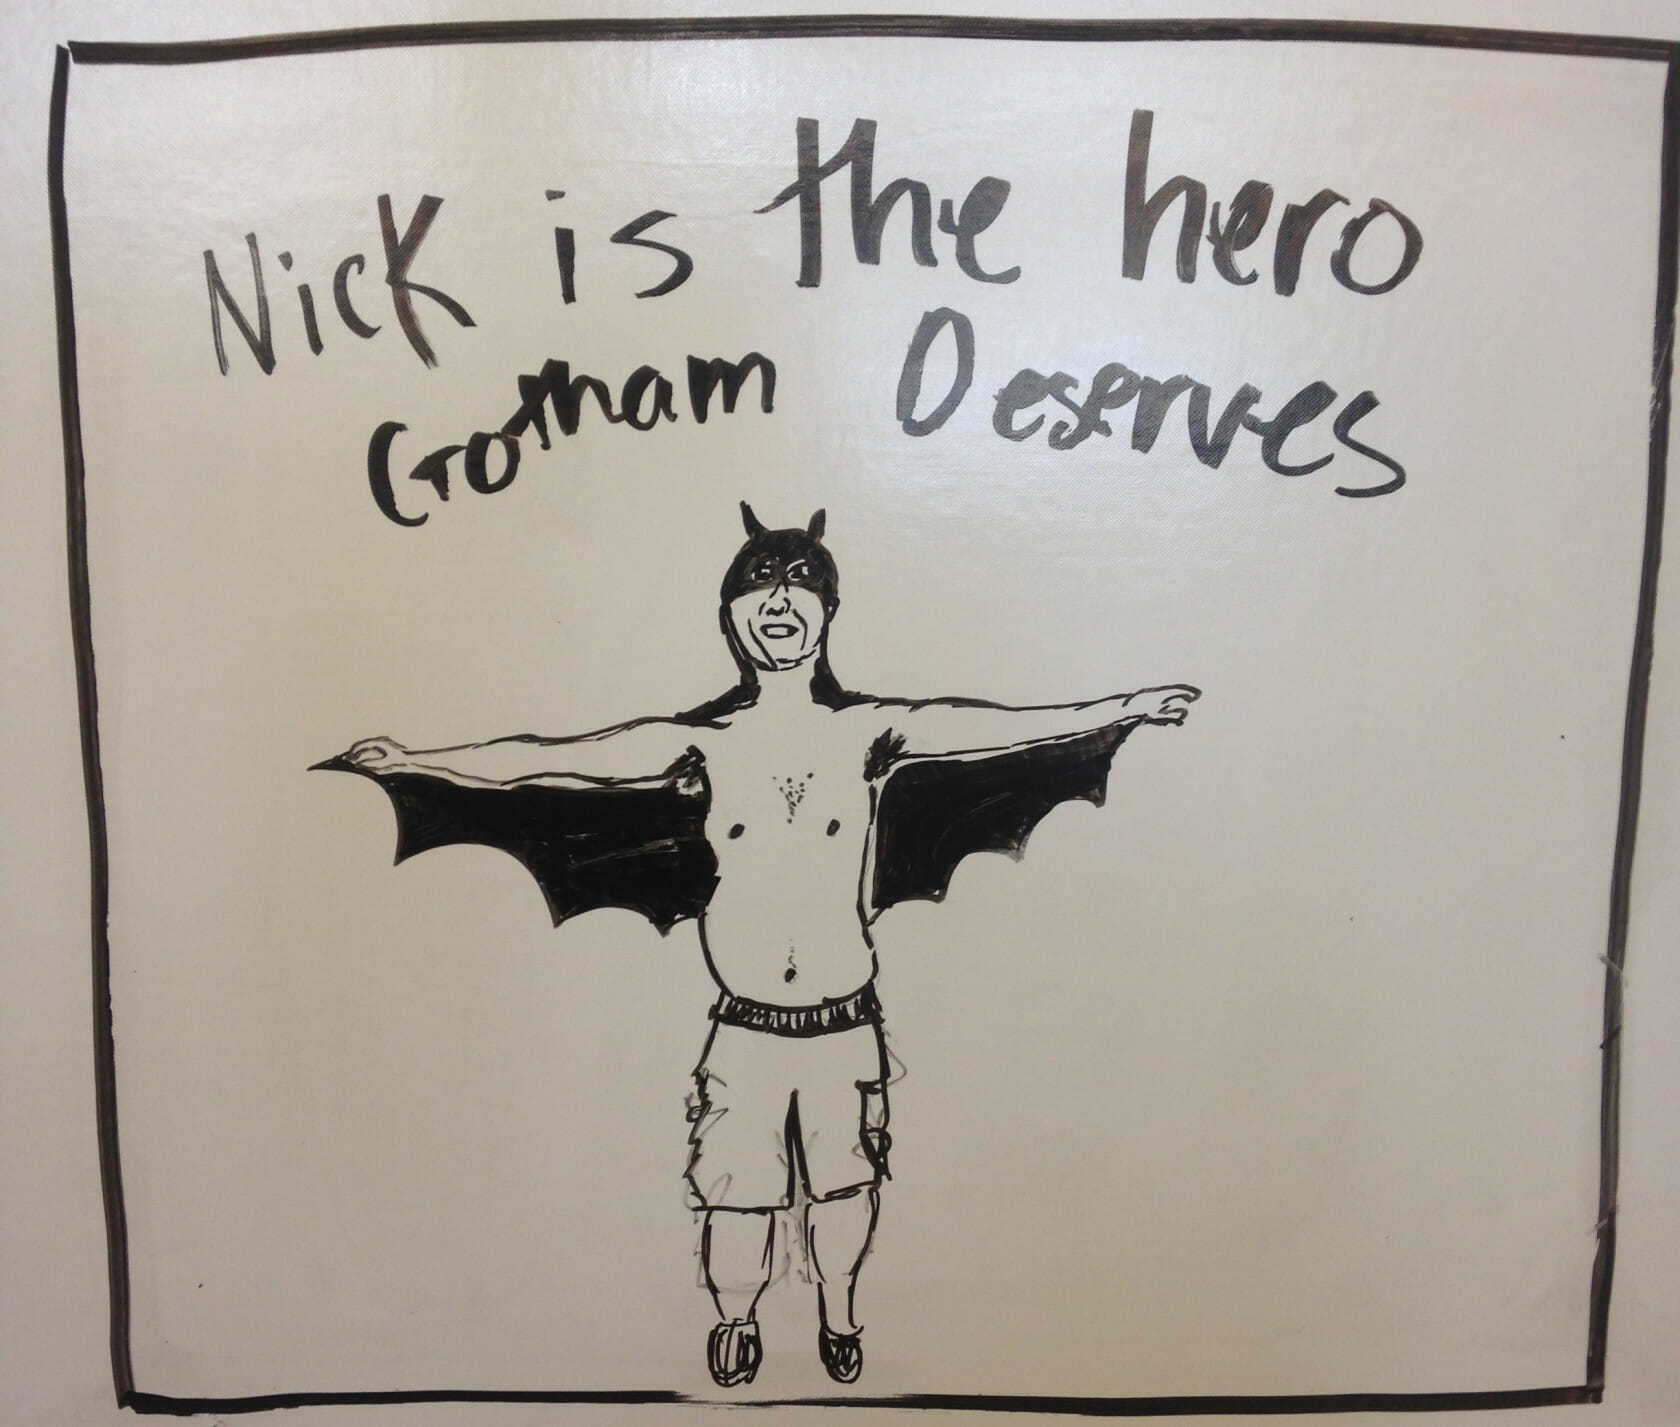 Nick is the hero
Gotham Deserves